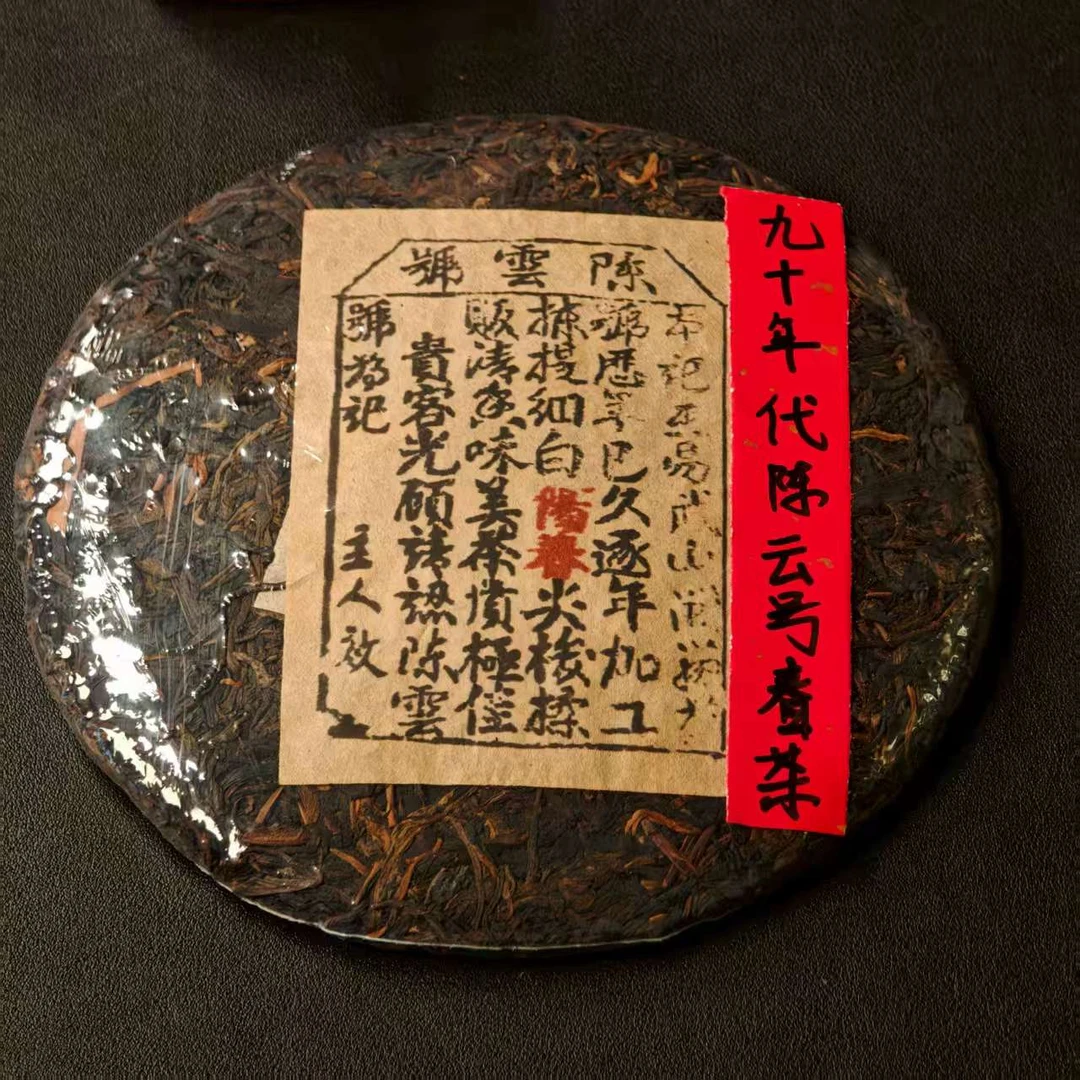 陈雲號
本記在易武山開
號歷年已久逐年加工
揀提細白陽春尖棱揉
販清香味美茶墳極佳
貴客光顧請認陈雲
號為記 主人啟
九十年代陈云号茶